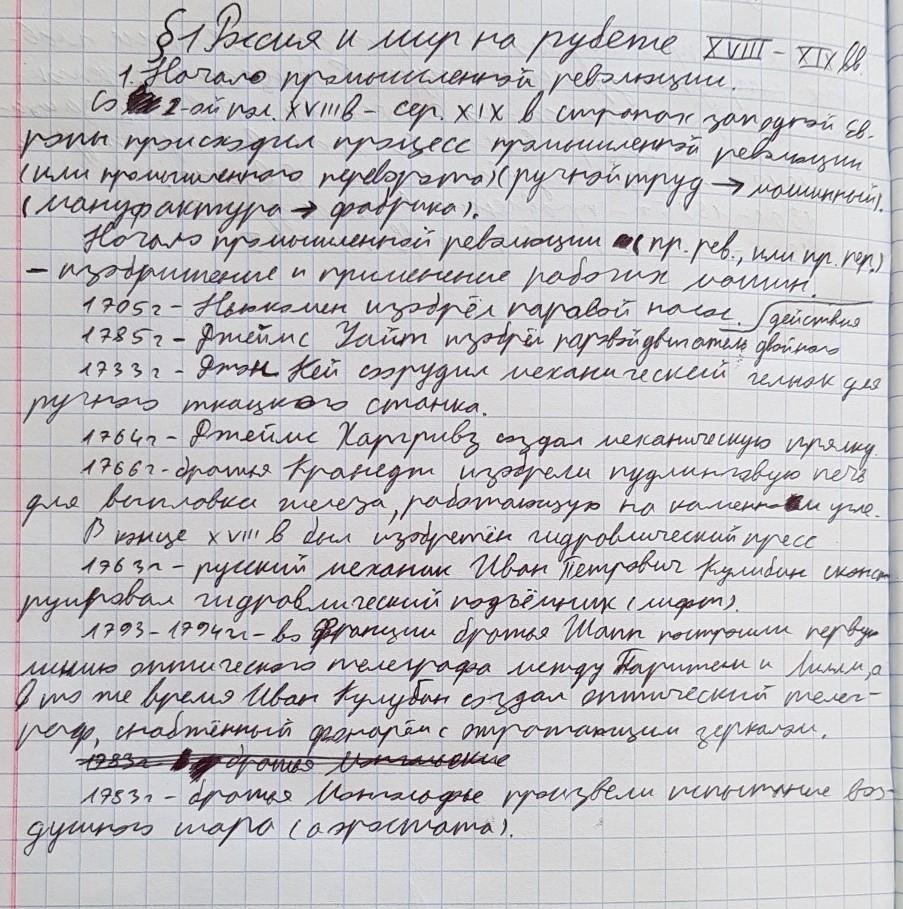 §1 Россия и мир на рубеже XVIII – XIX вв.
1. Начало промышленной революции.
Со 2-ой пол. XVIII в – сер. XIX в странах западной Ев-
ропы происходил процесс промышленной революции
(или промышленного переворота) (ручной труд → машинный).
(мануфактура → фабрика).
Начало промышленной революции (пр. рев., или пр. пер.)
– изобретение и применение рабочих машин.
1705г – Ньюкомен изобрёл паровой насос.
1785г – Джеймс Уайт изобрёл паровой двигатель двойного действия
1733г – Джон Кей соорудил механический челнок для
ручного ткацкого станка.
1764г – Джеймс Харгривз создал механическую прялку.
1766г – братья Кранедж изобрели пудлинговую печь
для выплавки железа, работающую на каменном угле.
В конце XVIII в был изобретён гидравлический пресс
1763г – русский механик Иван Петрович Кулибин сконст
руировал гидравлический подъёмник (лифт).
1793–1794гг – во Франции братья Шапп построили первую
линию оптического телеграфа между Парижем и Лилли, а
в то же время Иван Кулубин создал оптический телег-
раф, снабжённый фонарём с отражающим зеркалом.
1783г братья Монгольские
1783г – братья Монгольфье произвели испытание воз-
душного шара (аэростата).